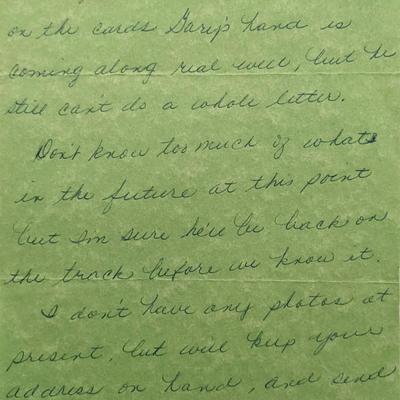 on the cards Gary's hand is
coming along real well, but he
still can't do a whole letter.
Don't know too much of what's
in the future at this point
but I'm sure he'll be back on
the track before we know it.
I don't have any photos at
present, but will keep your
address on hand, and send